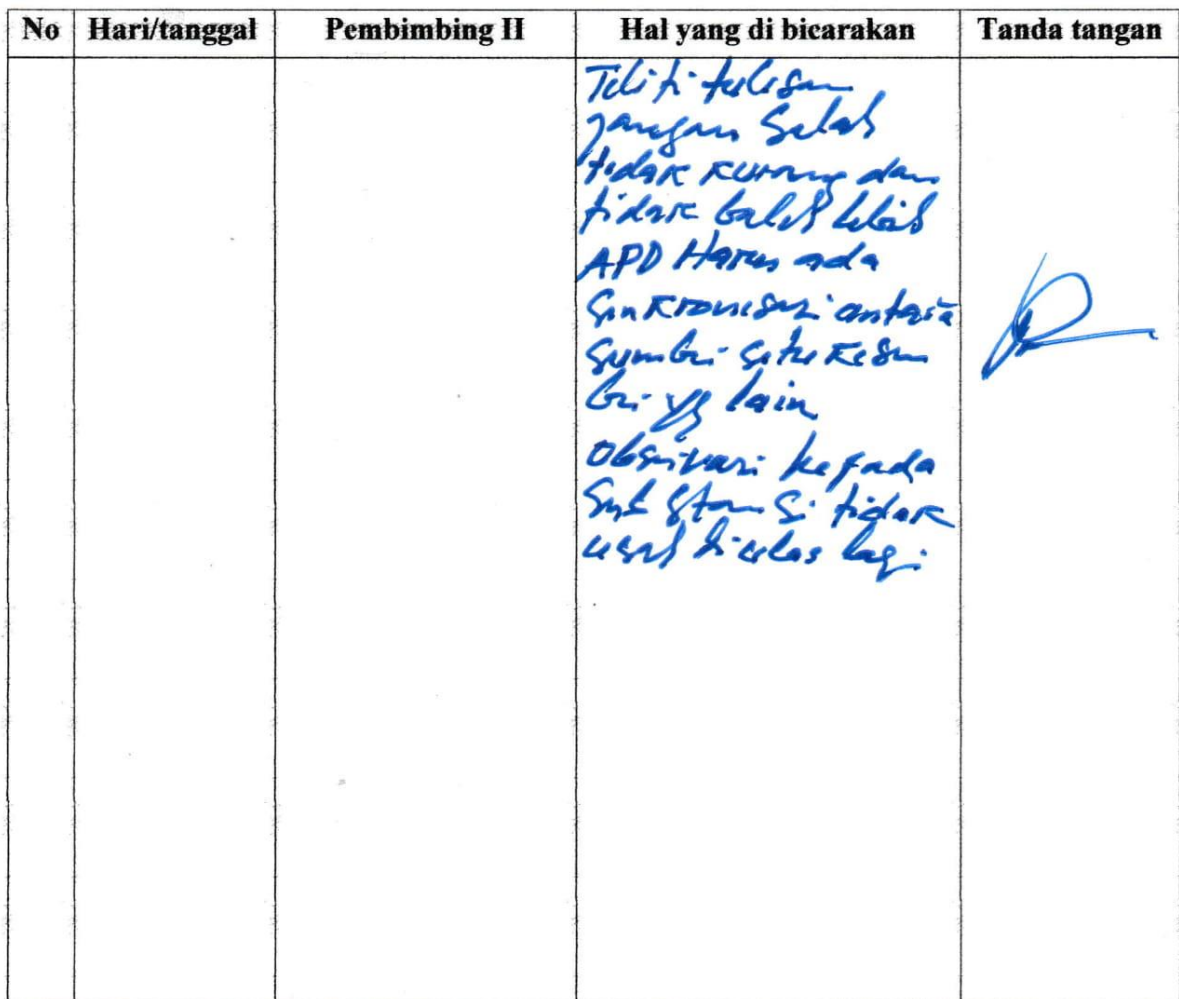 No Hari/tanggal Pembimbing II Hal yang di bicarakan Tanda tangan
Teliti tulisan
jangan Salah
tidak kurang dan
tidak boleh lebih
APD Harus ada
Sinkronisasi antara
Sumber satu ke Sum
ber yg lain
Observasi kepada
Substansi tidak
usah di ulas lagi